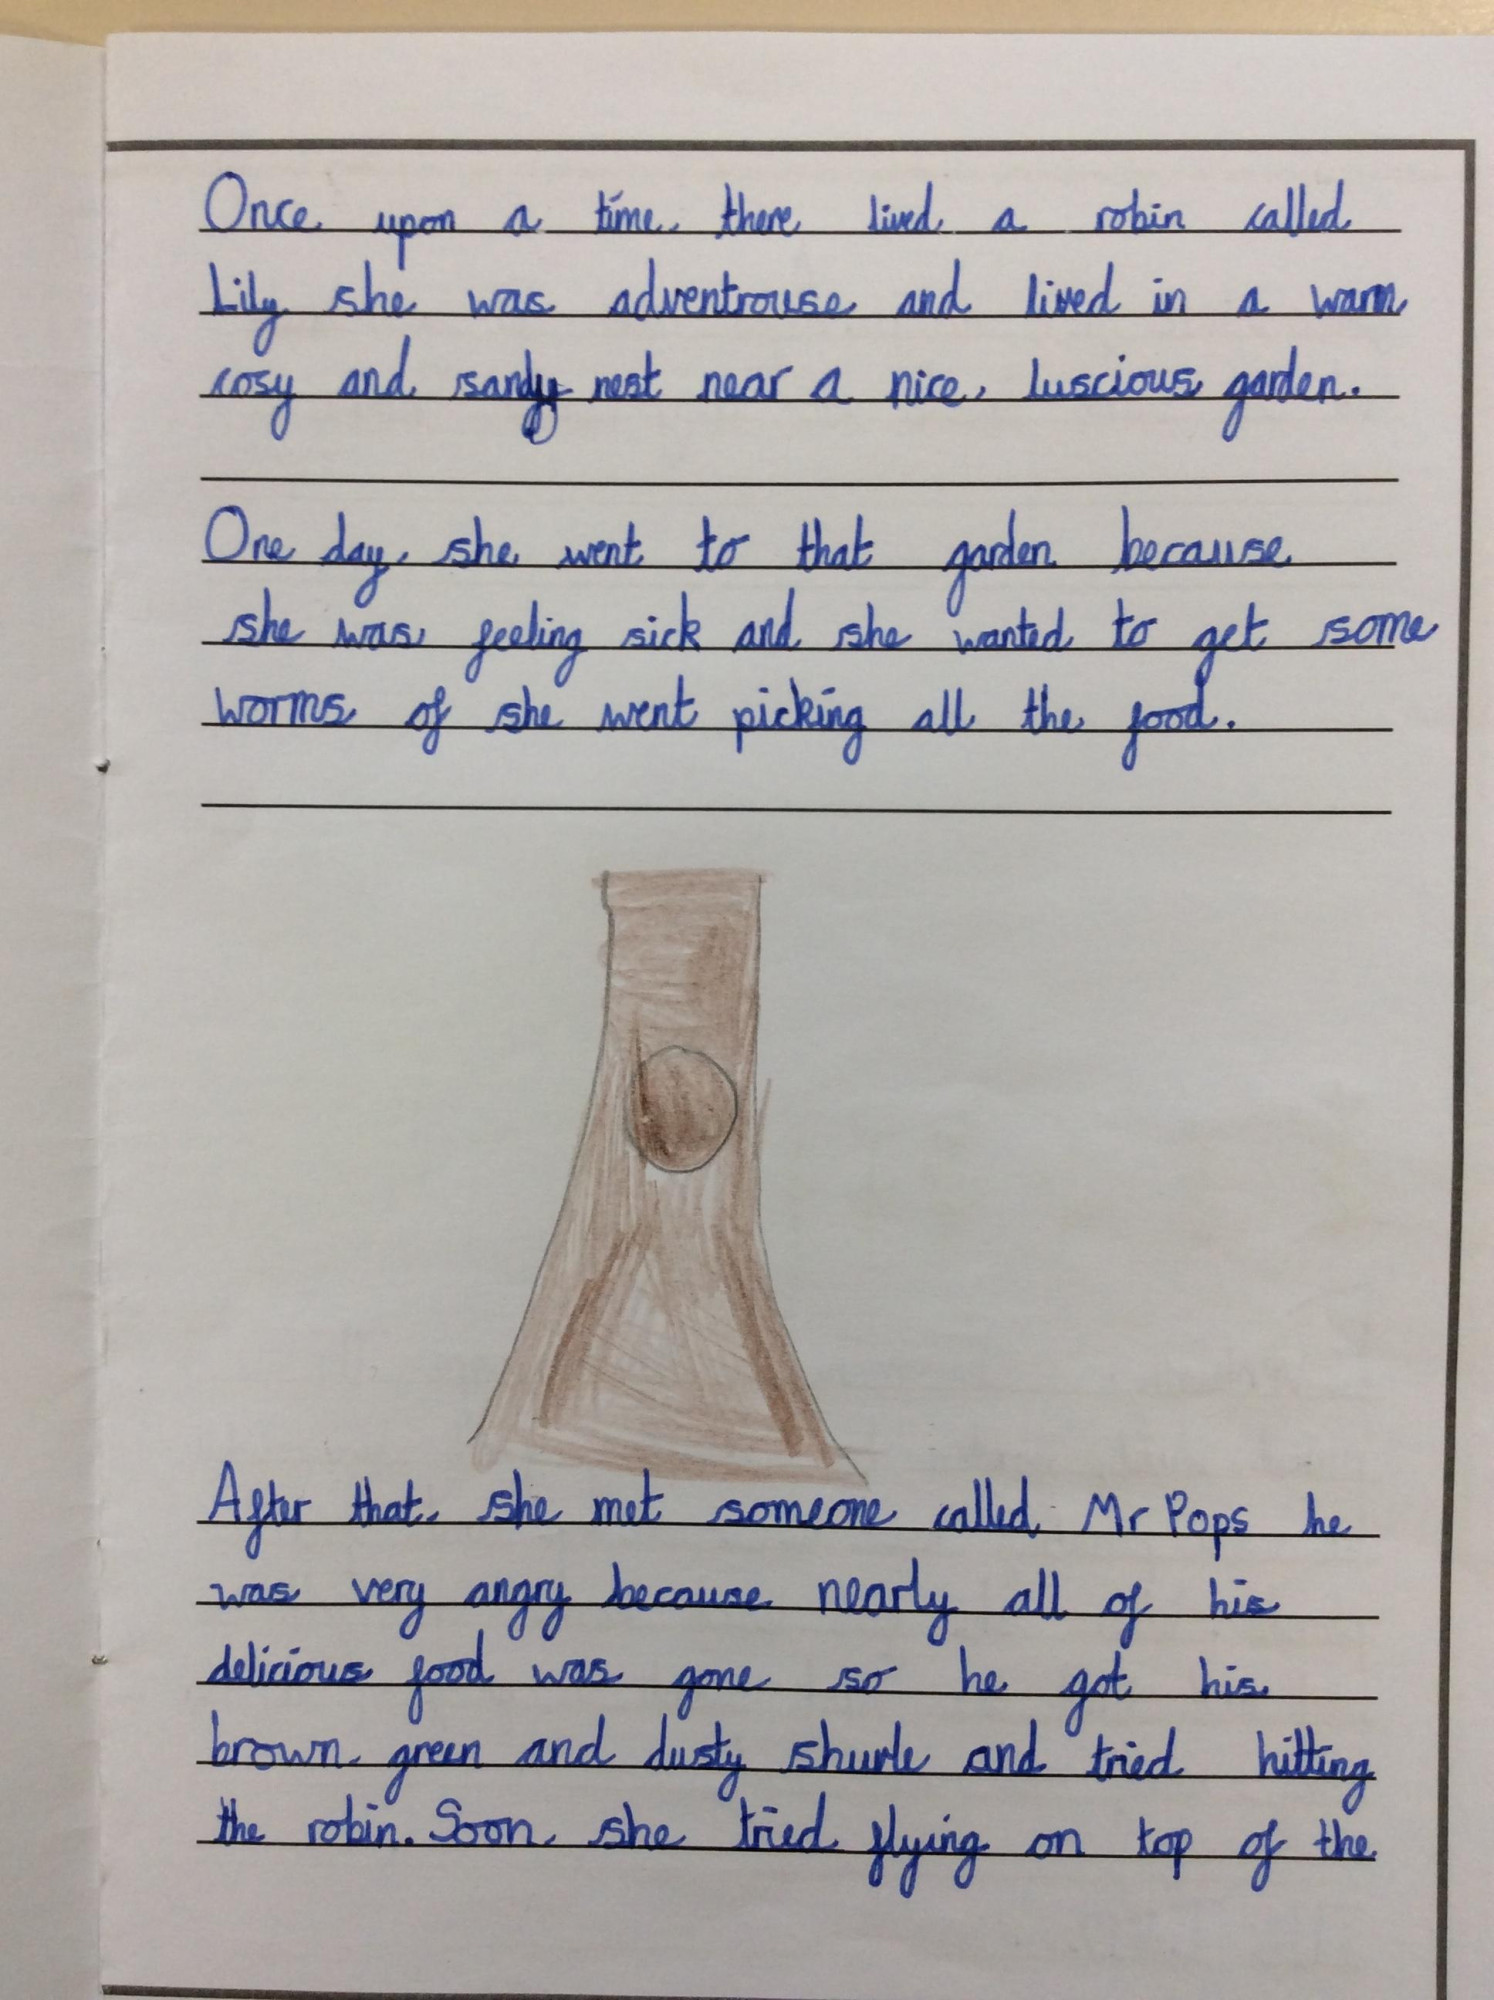 Once upon a time, there lived a robin called
Lily she was adventrouse and lived in a warm
cosy and sandy nest near a nice, luscious garden.
One day, she went to that garden because
she was feeling sick and she wanted to get some
worms of she went picking all the food.
After that, she met someone called Mr Pops he
was very angry because nearly all of his
delicious food was gone so he got his
brown, green and dusty shuvle and tried hitting
the robin. Soon, she tried flying on top of the